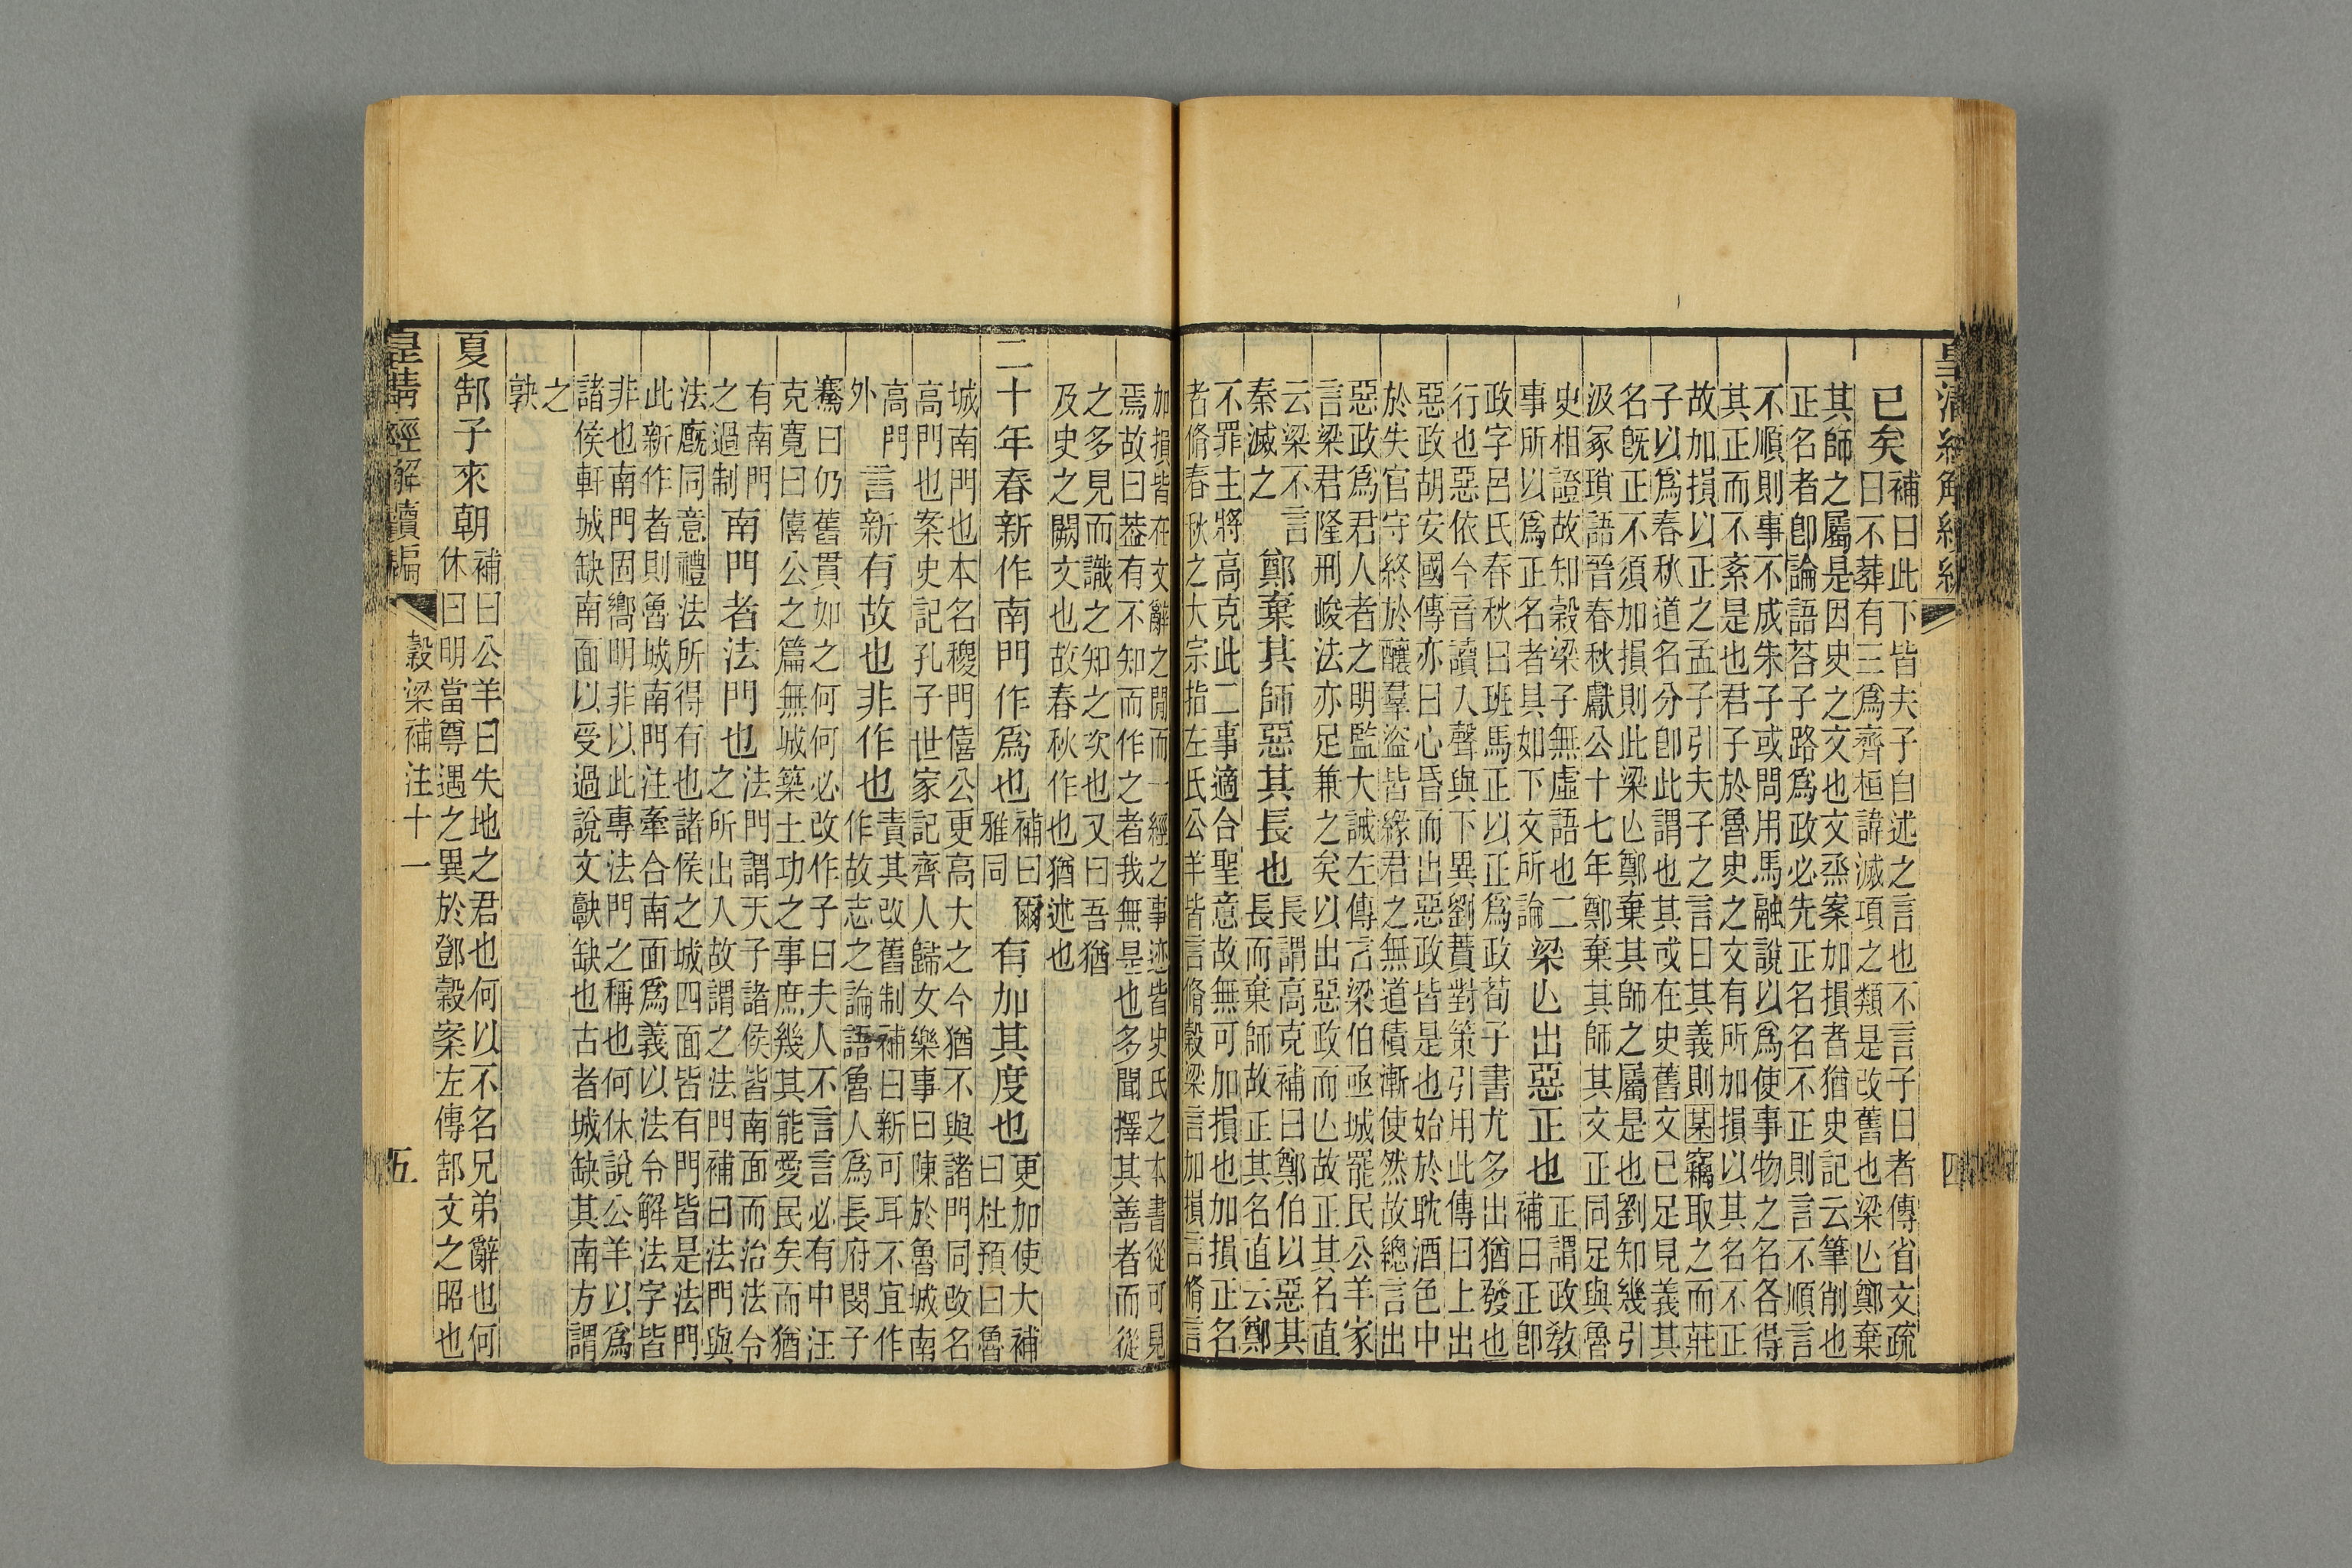 皇清經解續編
四
已矣
補曰此下皆夫子自述之言也不言子曰者傳省文疏
曰不葬有三爲齊桓諱滅項之類是改舊也梁亾鄭棄
其師之屬是因史之文也文烝案加損者猶史記云筆削也
正名者卽論語荅子路爲政必先正名名不正則言不順言
不順則事不成朱子或問用馬融說以爲使事物之名各得
其正而不紊是也君子於魯史之文有所加損以其名不正
故加損以正之孟子引夫子之言曰其義則某竊取之而莊
子以爲春秋道名分卽此謂也其或在史舊文已足見義其
名旣正不須加損則此梁亾鄭棄其師之屬是也劉知幾引
汲冢瑣語晉春秋獻公十七年鄭棄其師其文正同足與魯
史相證故知穀梁子無虛語也二
事所以爲正名者具如下文所論
梁亾出惡正也
正謂政敎
補曰正卽
政字呂氏春秋曰班馬正以正爲政荀子書尤多出猶發也
行也惡依今音讀入聲與下異劉蕡對策引用此傳曰上出
惡政胡安國傳亦曰心昏而出惡政皆是也始於耽酒色中
於失官守終於釀羣盜皆緣君之無道積漸使然故總言出
惡政爲君人者之明監大誡左傳言梁伯亟城罷民公羊家
言梁君隆刑峻法亦足兼之矣以出惡政而亾故正其名直
云梁不言
秦滅之
鄭棄其師惡其長也
長謂高克補曰鄭伯以惡其
長而棄師故正其名直云鄭
不罪主將高克此二事適合聖意故無可加損也加損正名
者脩春秋之大宗指左氏公羊皆言脩穀梁言加損言脩言
加損皆在文辭之閒而一經之事迹皆史氏之本書從可見
焉故曰葢有不知而作之者我無是也多聞擇其善者而從
之多見而識之知之次也又曰吾猶
及史之闕文也故春秋作也猶述也
二十年春新作南門作爲也
補曰爾
雅同
有加其度也
更加使大補
曰杜預曰魯
城南門也本名稷門僖公更高大之今猶不與諸門同改名
高門也案史記孔子世家記齊人歸女樂事曰陳於魯城南
高門
外
言新有故也非作也
責其改舊制補曰新可耳不宜作
作故志之論語魯人爲長府閔子
騫曰仍舊貫如之何何必改作子曰夫人不言言必有中汪
克寬曰僖公之篇無城築土功之事庶幾其能愛民矣而猶
有南門
之過制
南門者法門也
法門謂天子諸侯皆南面而治法令
之所出入故謂之法門補曰法門與
法廄同意禮法所得有也諸侯之城四面皆有門皆是法門
此新作者則魯城南門注牽合南面爲義以法令解法字皆
非也南門固嚮明非以此專法門之稱也何休說公羊以爲
諸侯軒城缺南面以受過說文𩫏缺也古者城缺其南方謂
之
𩫏
夏郜子來朝
補曰公羊曰失地之君也何以不名兄弟辭也何
休曰明當尊遇之異於鄧穀案左傳郜文之昭也
皇清經解續編
穀梁補注十一
五